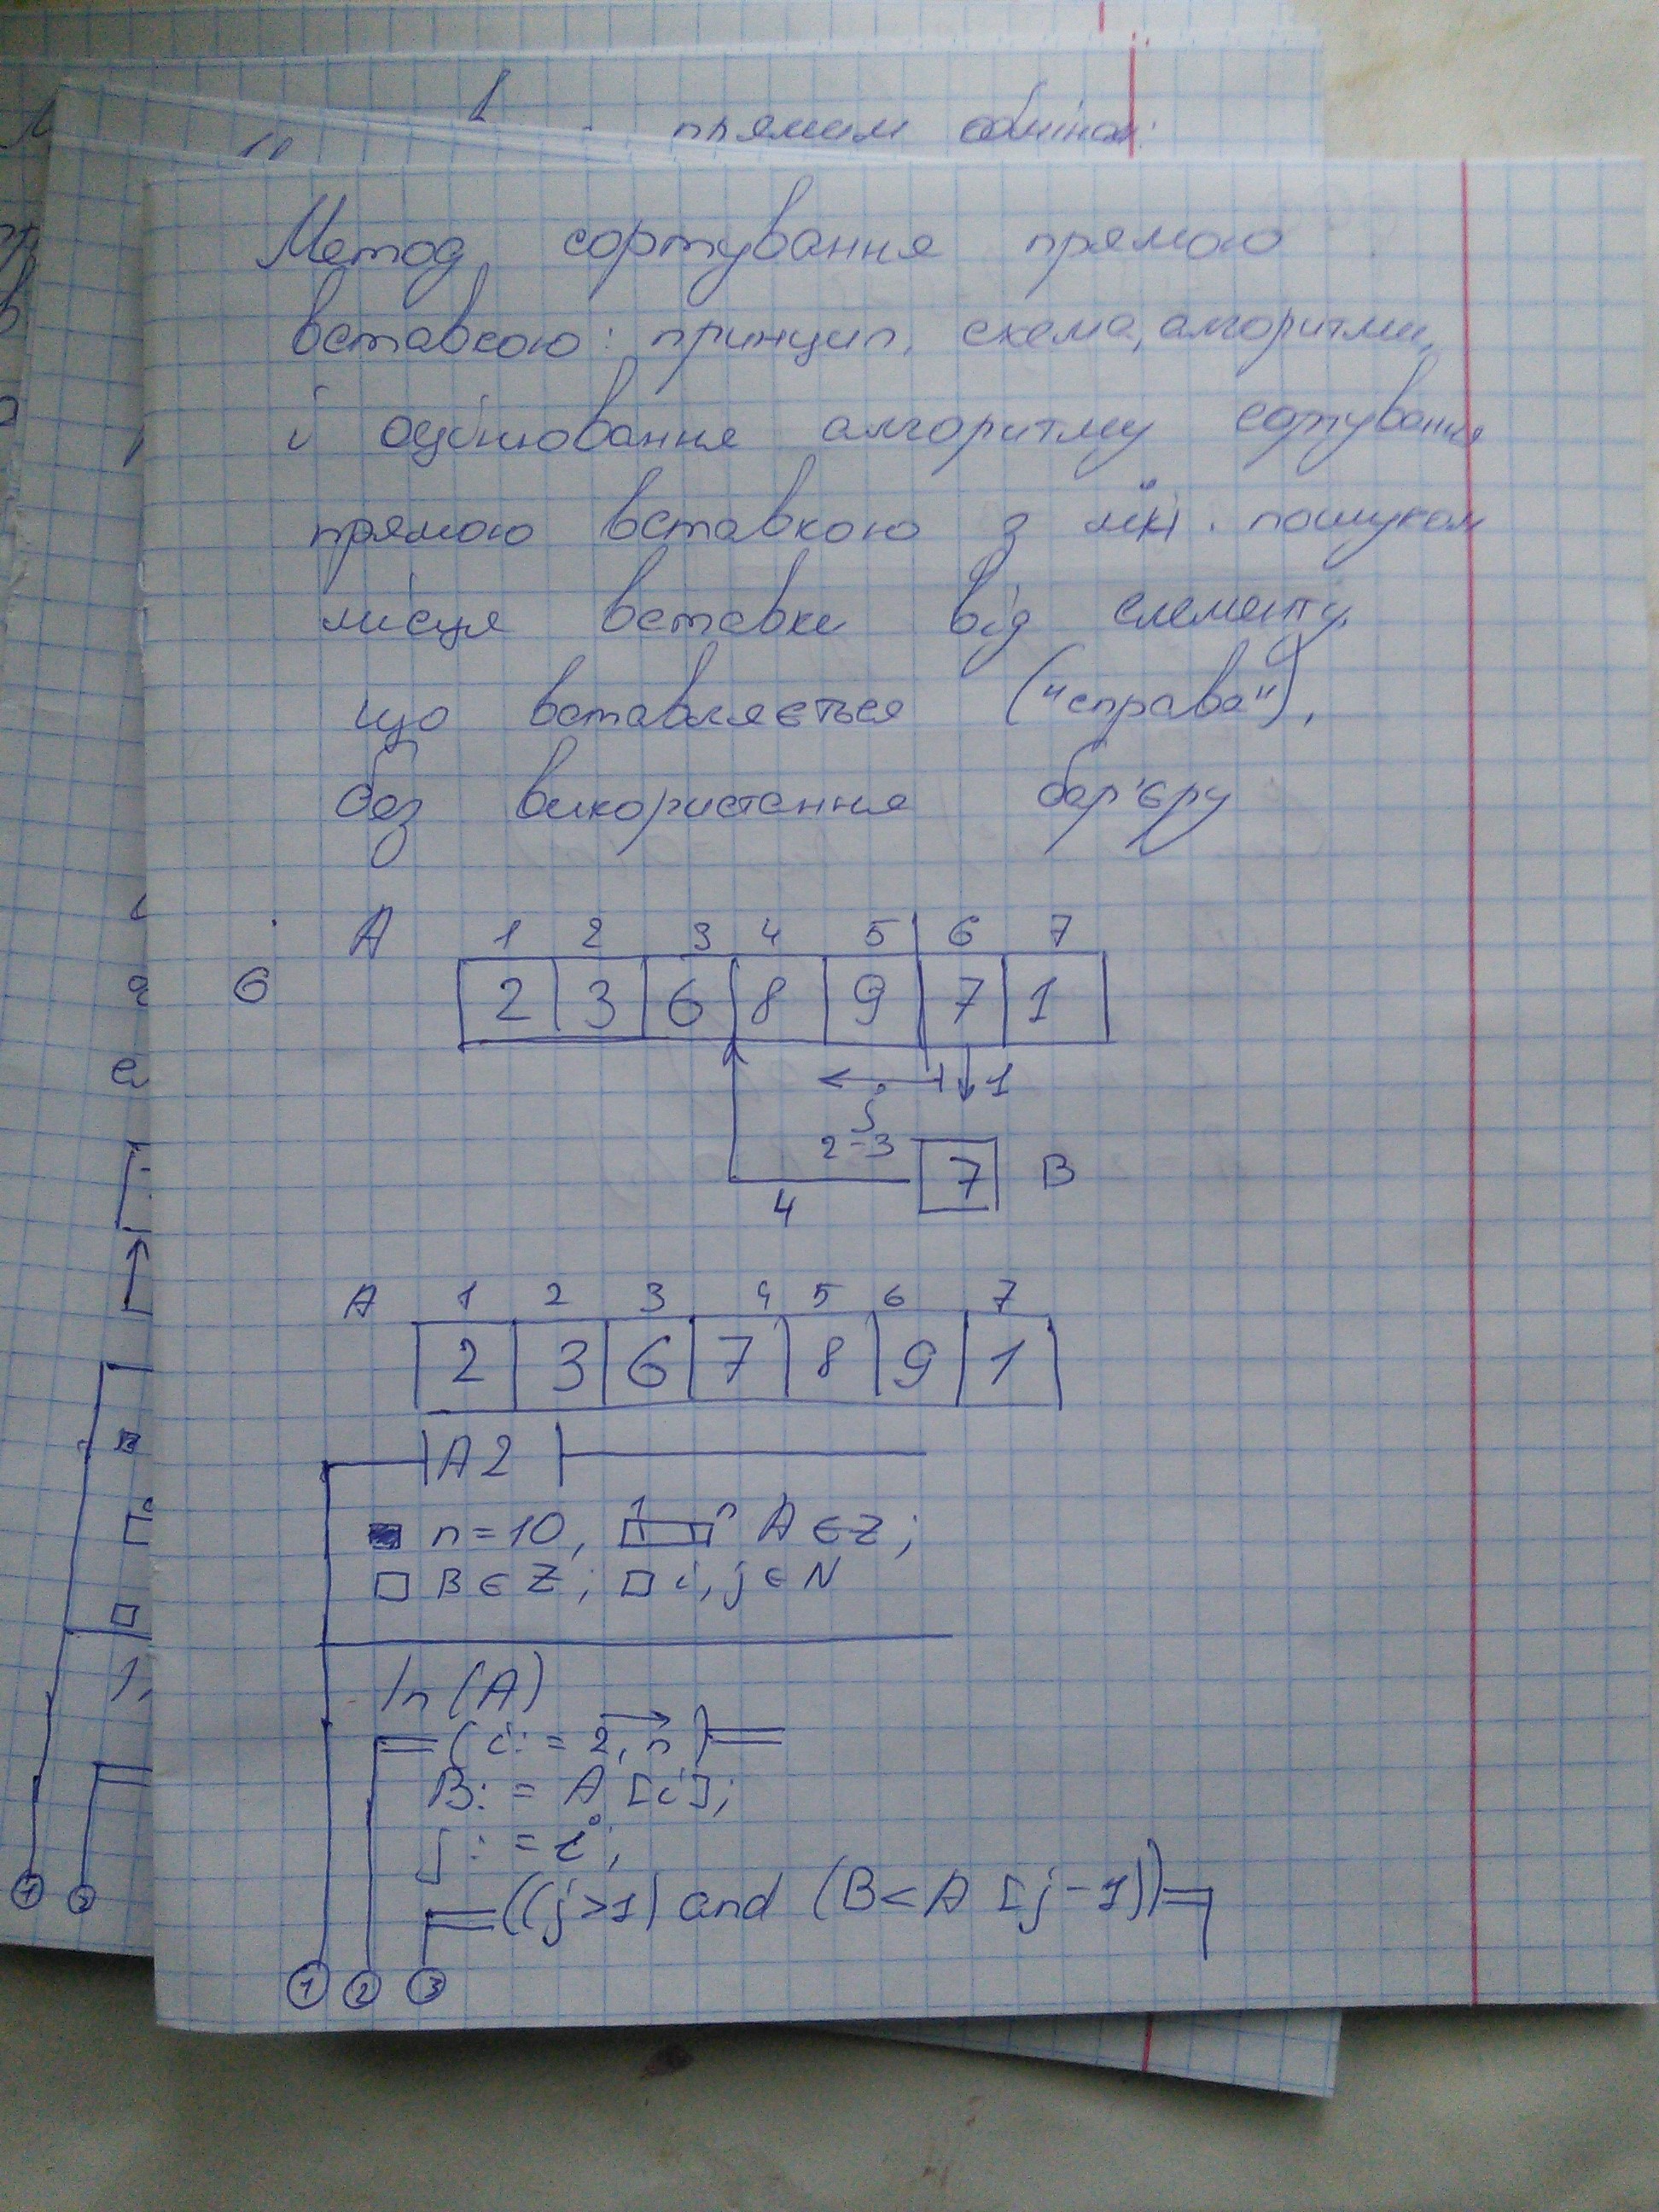 прямим обміном:
Метод сортування прямою
вставкою: принцип, схема, алгоритми,
і оцінювання алгоритму сортування
прямою вставкою з лін. пошуком
місця вставки від елементу,
що вставляється ("справа"),
без використання бар'єру
A 1 2 3 4 5 6 7
6 2 3 6 8 9 7 1
1
j
2-3
7 B
4
A 1 2 3 4 5 6 7
2 3 6 7 8 9 1
A2
n=10, 1 n A ∈ Z;
B ∈ Z; i, j ∈ N
In(A)
(i:= 2, n)
B:= A [i];
j:= i;
((j>1) and (B<A [j-1]))
1 2 3
1 2